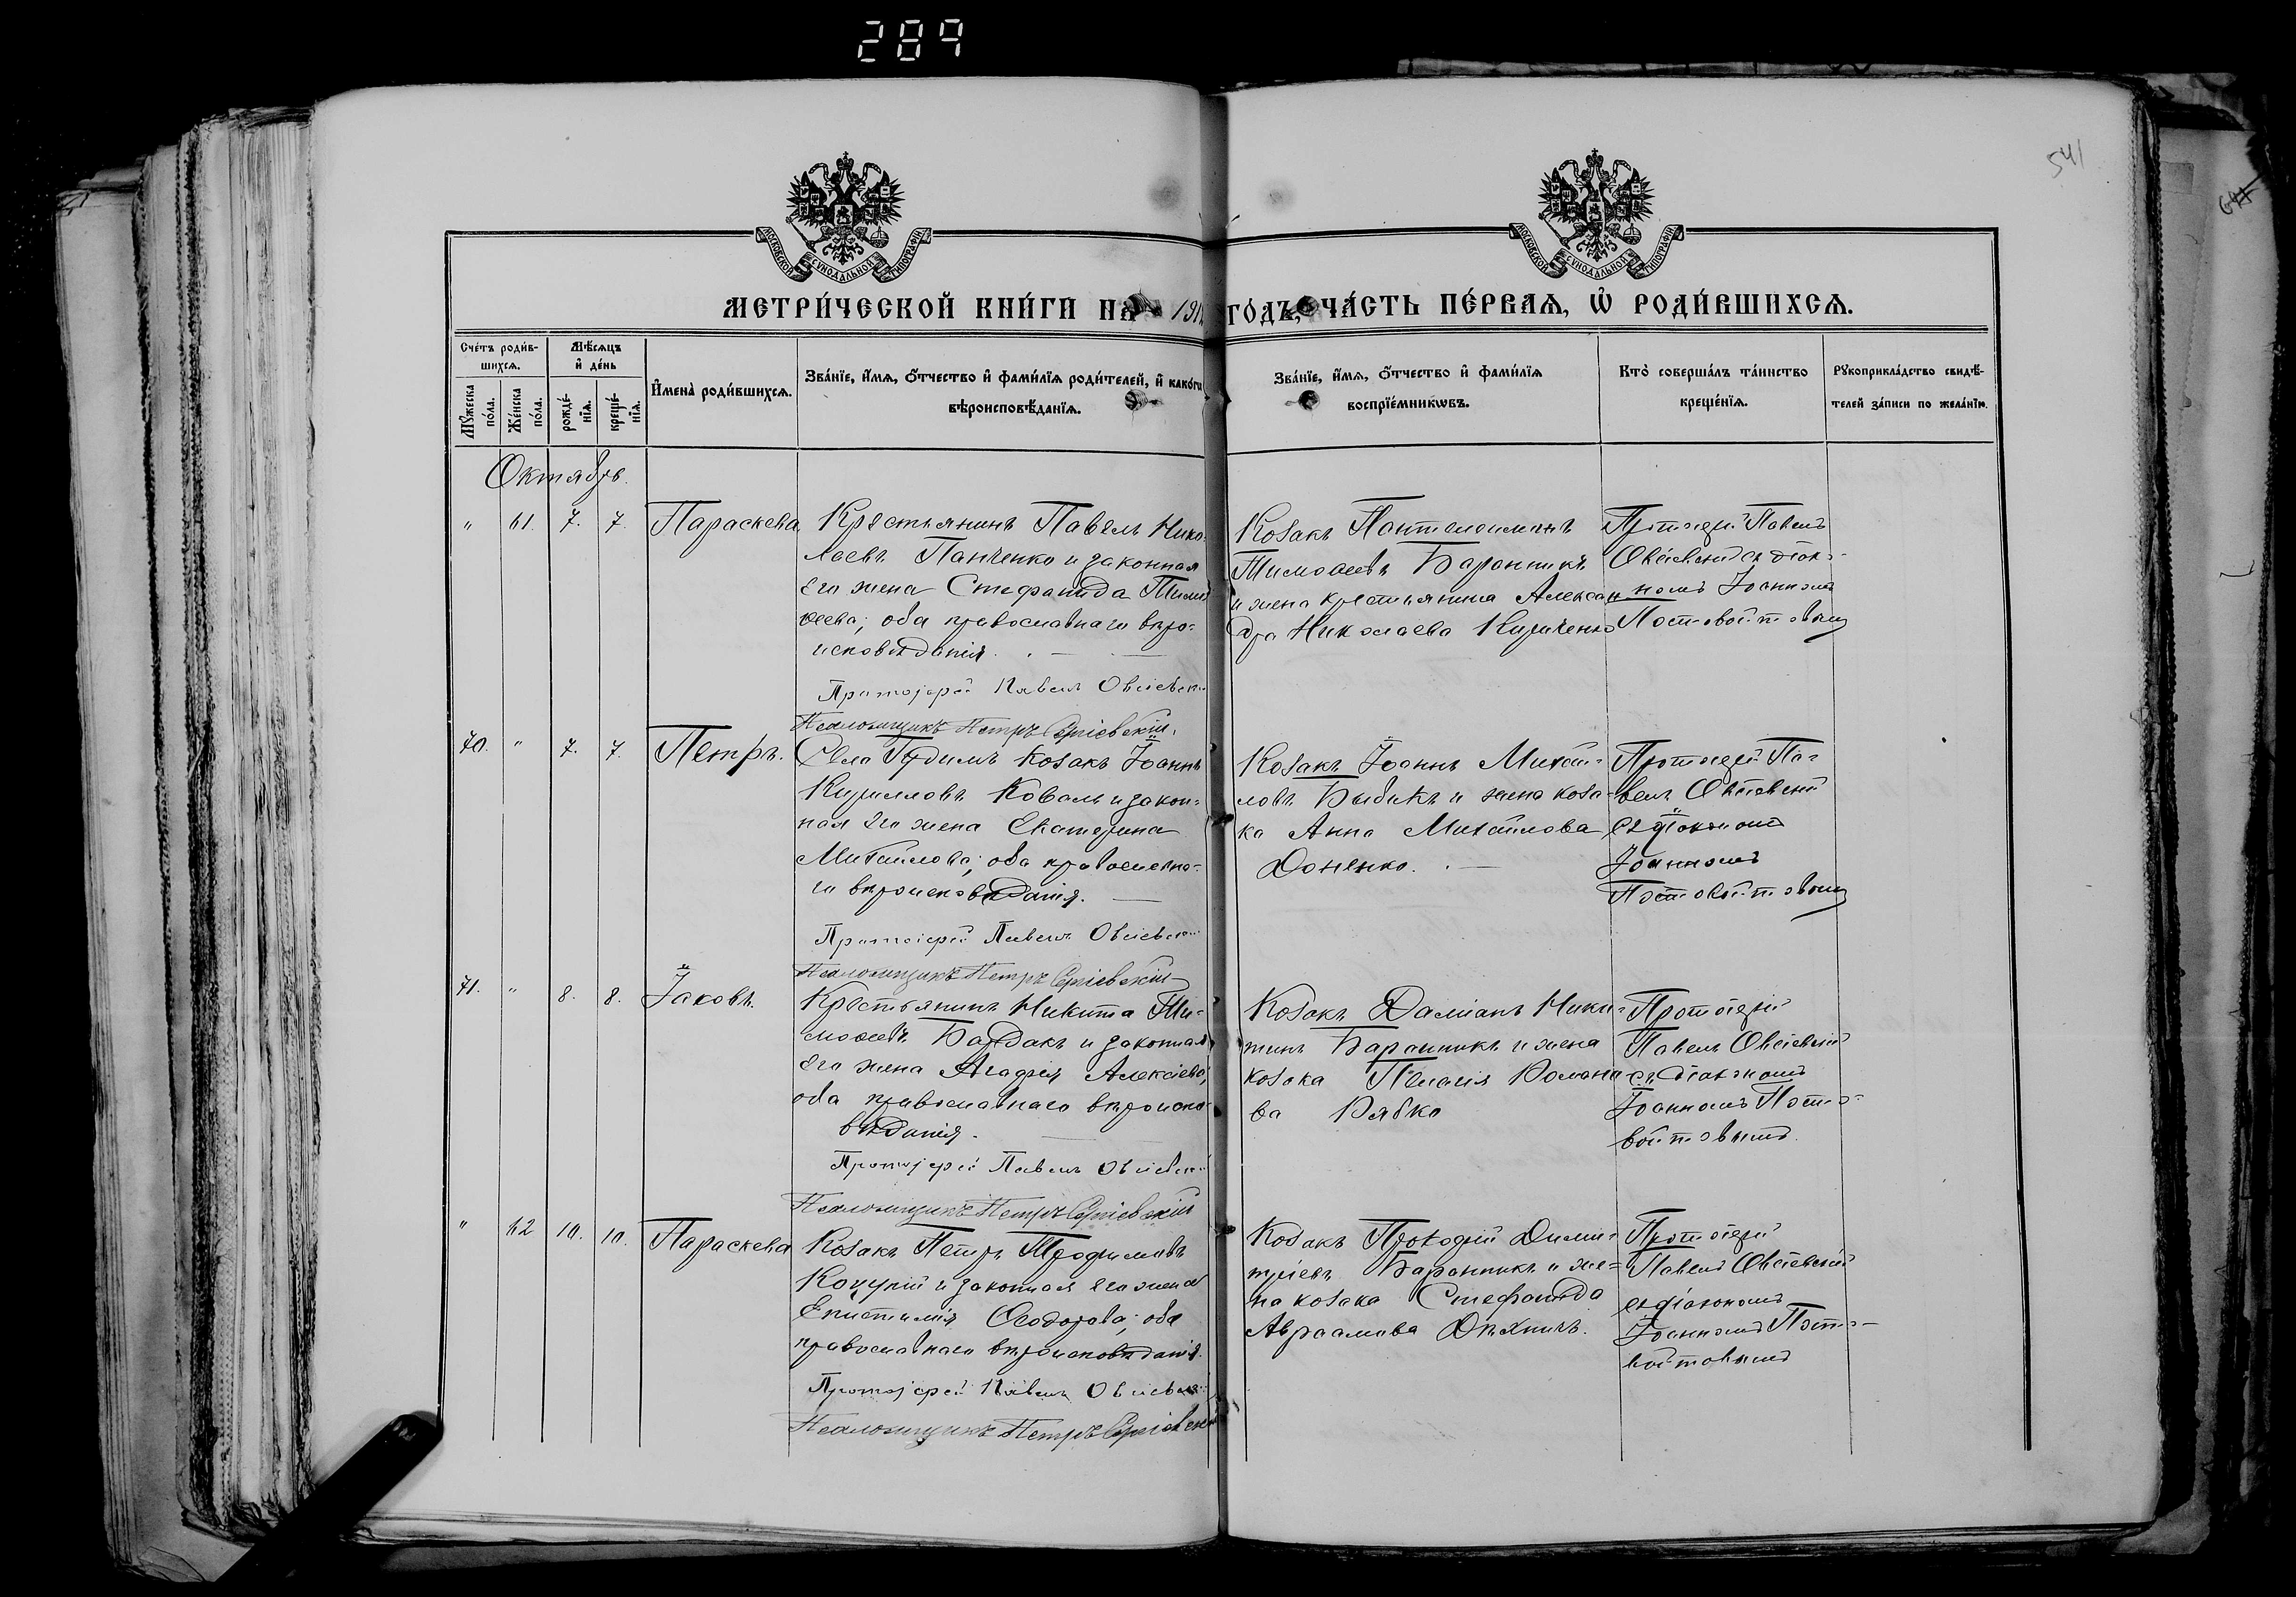 289
541
МОСКОВСКОЙ СУНОДАЛЬНОЙ ТИПОГРАФІИ
МОСКОВСКОЙ СУНОДАЛЬНОЙ ТИПОГРАФІИ
МЕТРИ́ЧЕСКОЙ КНИ́ГИ НА 191 ГО́ДЪ, ЧА́СТЬ ПЕ́РВАѦ, Ѡ РОДИ́ВШИХСѦ.
Сче́тъ роди́в-
шихсѧ.
Мꙋ́жеска
по́ла.
Же́нска
по́ла.
Мѣ́сѧцъ
и де́нь
рожде́-
нїѧ.
креще́-
нїѧ.
И҆мена̀ роди́вшихсѧ.
Зва́нїе, и҆́мѧ, ѻ҆́тчество и҆ фами́лїѧ роди́телей, и҆ како́гѡ
вѣроисповѣ́данїѧ.
Зва́нїе, и҆́мѧ, ѻ҆́тчество и҆ фами́лїѧ
воспрїе́мникѡвъ.
Кто̀ соверша́лъ та́инство
креще́нїѧ.
Рꙋкоприкла́дство свидѣ́-
телей за́писи по жела́нїю.
Октябрь.
" 61. 7. 7. Параскева
Крестьянинъ Павелъ Нико-
лаевъ Панченко и законная
его жена Стефанида Тимо
ѳеева; оба православнаго вѣро-
исповѣданія.
Протоіерей Павелъ Овсіевскій
Псаломщикъ Петръ Сергіевскій.
Козакъ Пантелеимонъ
Тимоѳеевъ Баранникъ
и жена крестьянина Алексан
дра Николаева Кириченко
Протоіерей Павелъ
Овсіевскій съ діако-
номъ Іоанномъ
Постовойтовымъ
70. " 7. 7. Петръ.
Села Гудимъ козакъ Іоаннъ
Кирилловъ Коваль и закон-
ная его жена Екатерина
Михайлова; оба православна-
го вѣроисповѣданія.
Протоіерей Павелъ Овсіевскій
Псаломщикъ Петръ Сергіевскій
Козакъ Іоаннъ Михай-
ловъ Бибикъ и жена коза-
ка Анна Михайлова
Доненко.
Протоіерей Па-
велъ Овсіевскій
съ діакономъ
Іоанномъ
Постовойтовымъ
71. " 8. 8. Іаковъ.
Крестьянинъ Никита Ти-
моѳеевъ Бардакъ и законная
его жена Агафія Алексіева;
оба православнаго вѣроиспо-
вѣданія.
Протоіерей Павелъ Овсіевскій
Псаломщикъ Петръ Сергіевскій
Козакъ Даміанъ Ники-
тинъ Баранникъ и жена
козака Пелагія Романо
ва Рябко
Протоіерей
Павелъ Овсіевскій
съ діакономъ
Іоанномъ Посто-
войтовымъ.
" 62 10. 10. Параскева
Козакъ Петръ Трофимовъ
Коцупій и законная его жена
Епистимія Ѳеодорова; оба
православнаго вѣроисповѣданія.
Протоіерей Павелъ Овсіевскій
Псаломщикъ Петръ Сергіевскій
Козакъ Прокофій Дими-
тріевъ Баранникъ и же-
на козака Стефанида
Авраамова
Протоіерей
Павелъ Овсіевскій
съ діакономъ
Іоанномъ Посто-
войтовымъ